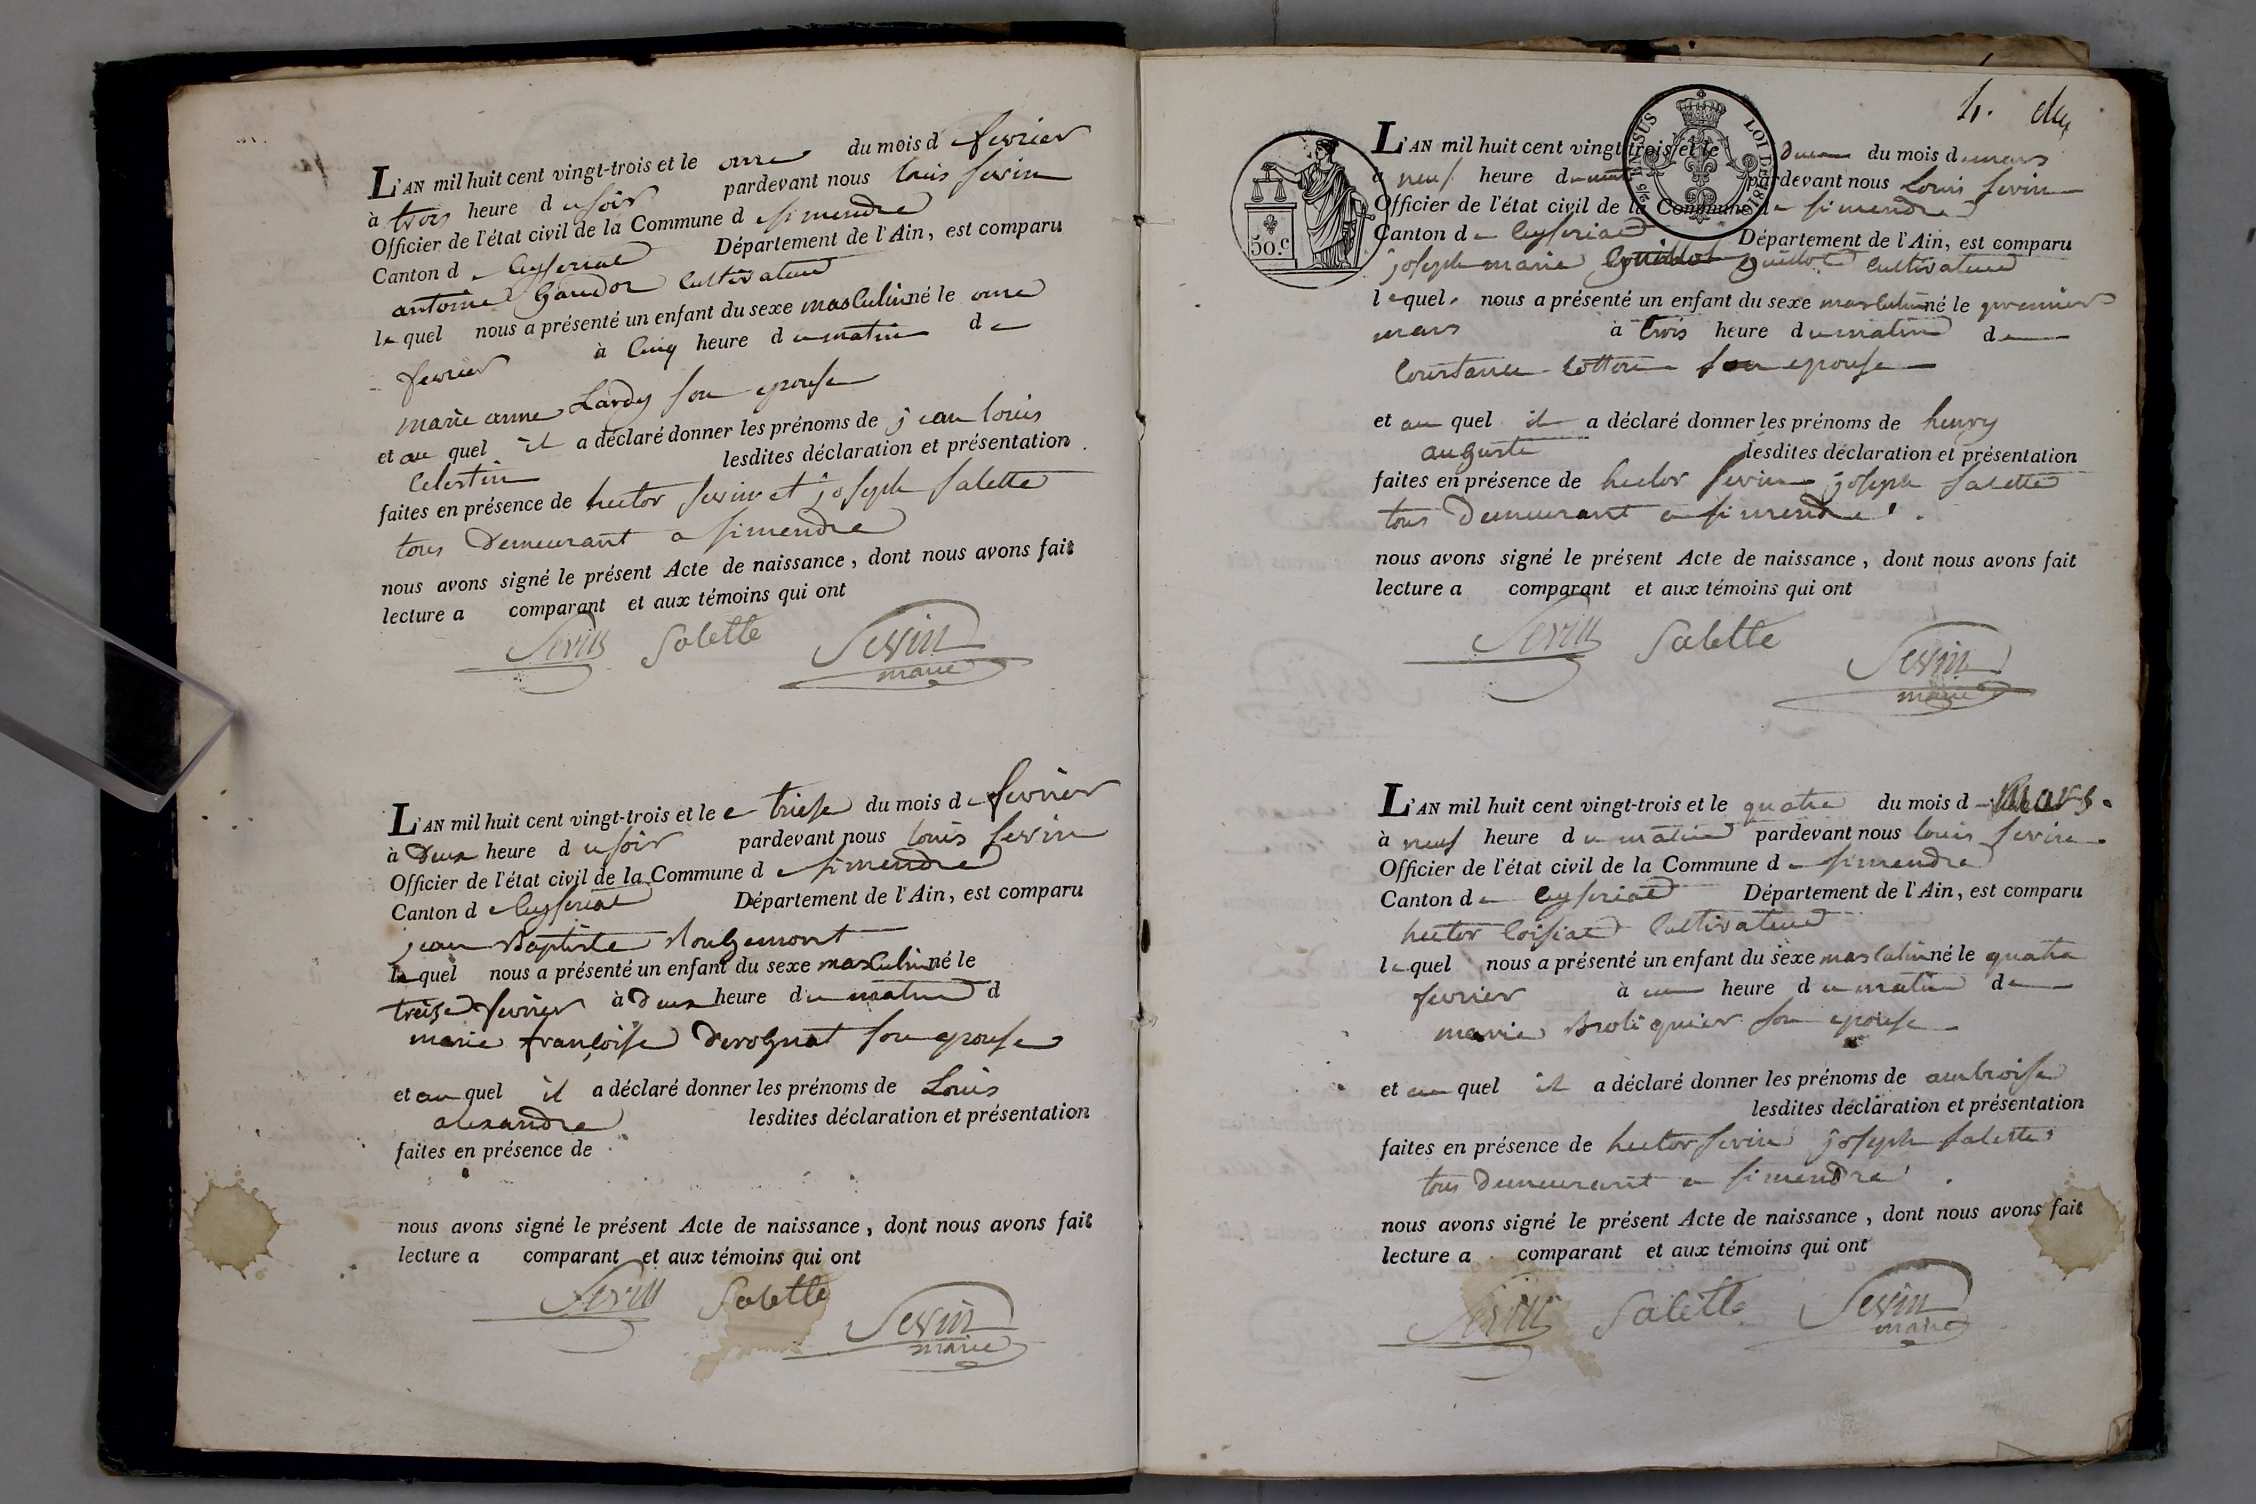 L'AN mil huit cent vingt-trois et le onze du mois de fevrier
à trois heure du soir pardevant nous louis sevin
Officier de l'état civil de la Commune de simendre
Canton de Ceyseriat Département de l'Ain, est comparu
antoine Gaudoz Cultivateur
le quel nous a présenté un enfant du sexe masculin né le onze
fevrier à Cinq heure du matin de
marie anne Lardy son epouse
et au quel il a déclaré donner les prénoms de jean louis
Celestin lesdites déclaration et présentation
faites en présence de hector sevin et joseph salette
tous Demeurant a simendre
nous avons signé le présent Acte de naissance, dont nous avons fait
lecture a comparant et aux témoins qui ont
Sevin Salette Sevin
maire
L'AN mil huit cent vingt-trois et le treise du mois de fevrier
à Deux heure du soir pardevant nous louis sevin
Officier de l'état civil de la Commune de simendre
Canton de Ceyseriat Département de l'Ain, est comparu
jean Baptiste Rougemont
le quel nous a présenté un enfant du sexe masculin né le
treize fevrier à Deux heure du matin d
marie françoise Derognat son epouse
et au quel il a déclaré donner les prénoms de Louis
alexandre lesdites déclaration et présentation
faites en présence de
nous avons signé le présent Acte de naissance, dont nous avons fait
lecture a comparant et aux témoins qui ont
Sevin Salette Sevin
maire
4.
50.c
25 EN SUS LOI DE 1816
L'AN mil huit cent vingt-trois et le deux du mois de mars
a neuf heure du matin pardevant nous Louis sevin
Officier de l'état civil de la Commune de simendre
Canton de Ceyseriat Département de l'Ain, est comparu
joseph marie Guillot Cultivateur
le quel nous a présenté un enfant du sexe masculin né le premier
mars à trois heure du matin de
Constance Cotton son epouse
et au quel il a déclaré donner les prénoms de henry
auguste lesdites déclaration et présentation
faites en présence de hector sevin joseph salette
tous Demeurant a simendre
nous avons signé le présent Acte de naissance, dont nous avons fait
lecture a comparant et aux témoins qui ont
Sevin Salette Sevin
maire
L'AN mil huit cent vingt-trois et le quatre du mois de Mars.
à neuf heure du matin pardevant nous louis sevin
Officier de l'état civil de la Commune de simendre
Canton de Ceyseriat Département de l'Ain, est comparu
hector Loisiat Cultivateur
le quel nous a présenté un enfant du sexe masculin né le quatre
fevrier à une heure du matin de
marie Broliquier son epouse
et au quel il a déclaré donner les prénoms de ambroise
lesdites déclaration et présentation
faites en présence de hector sevin joseph salette
tous Demeurant a simendre
nous avons signé le présent Acte de naissance, dont nous avons fait
lecture a comparant et aux témoins qui ont
Sevin Salette Sevin
maire